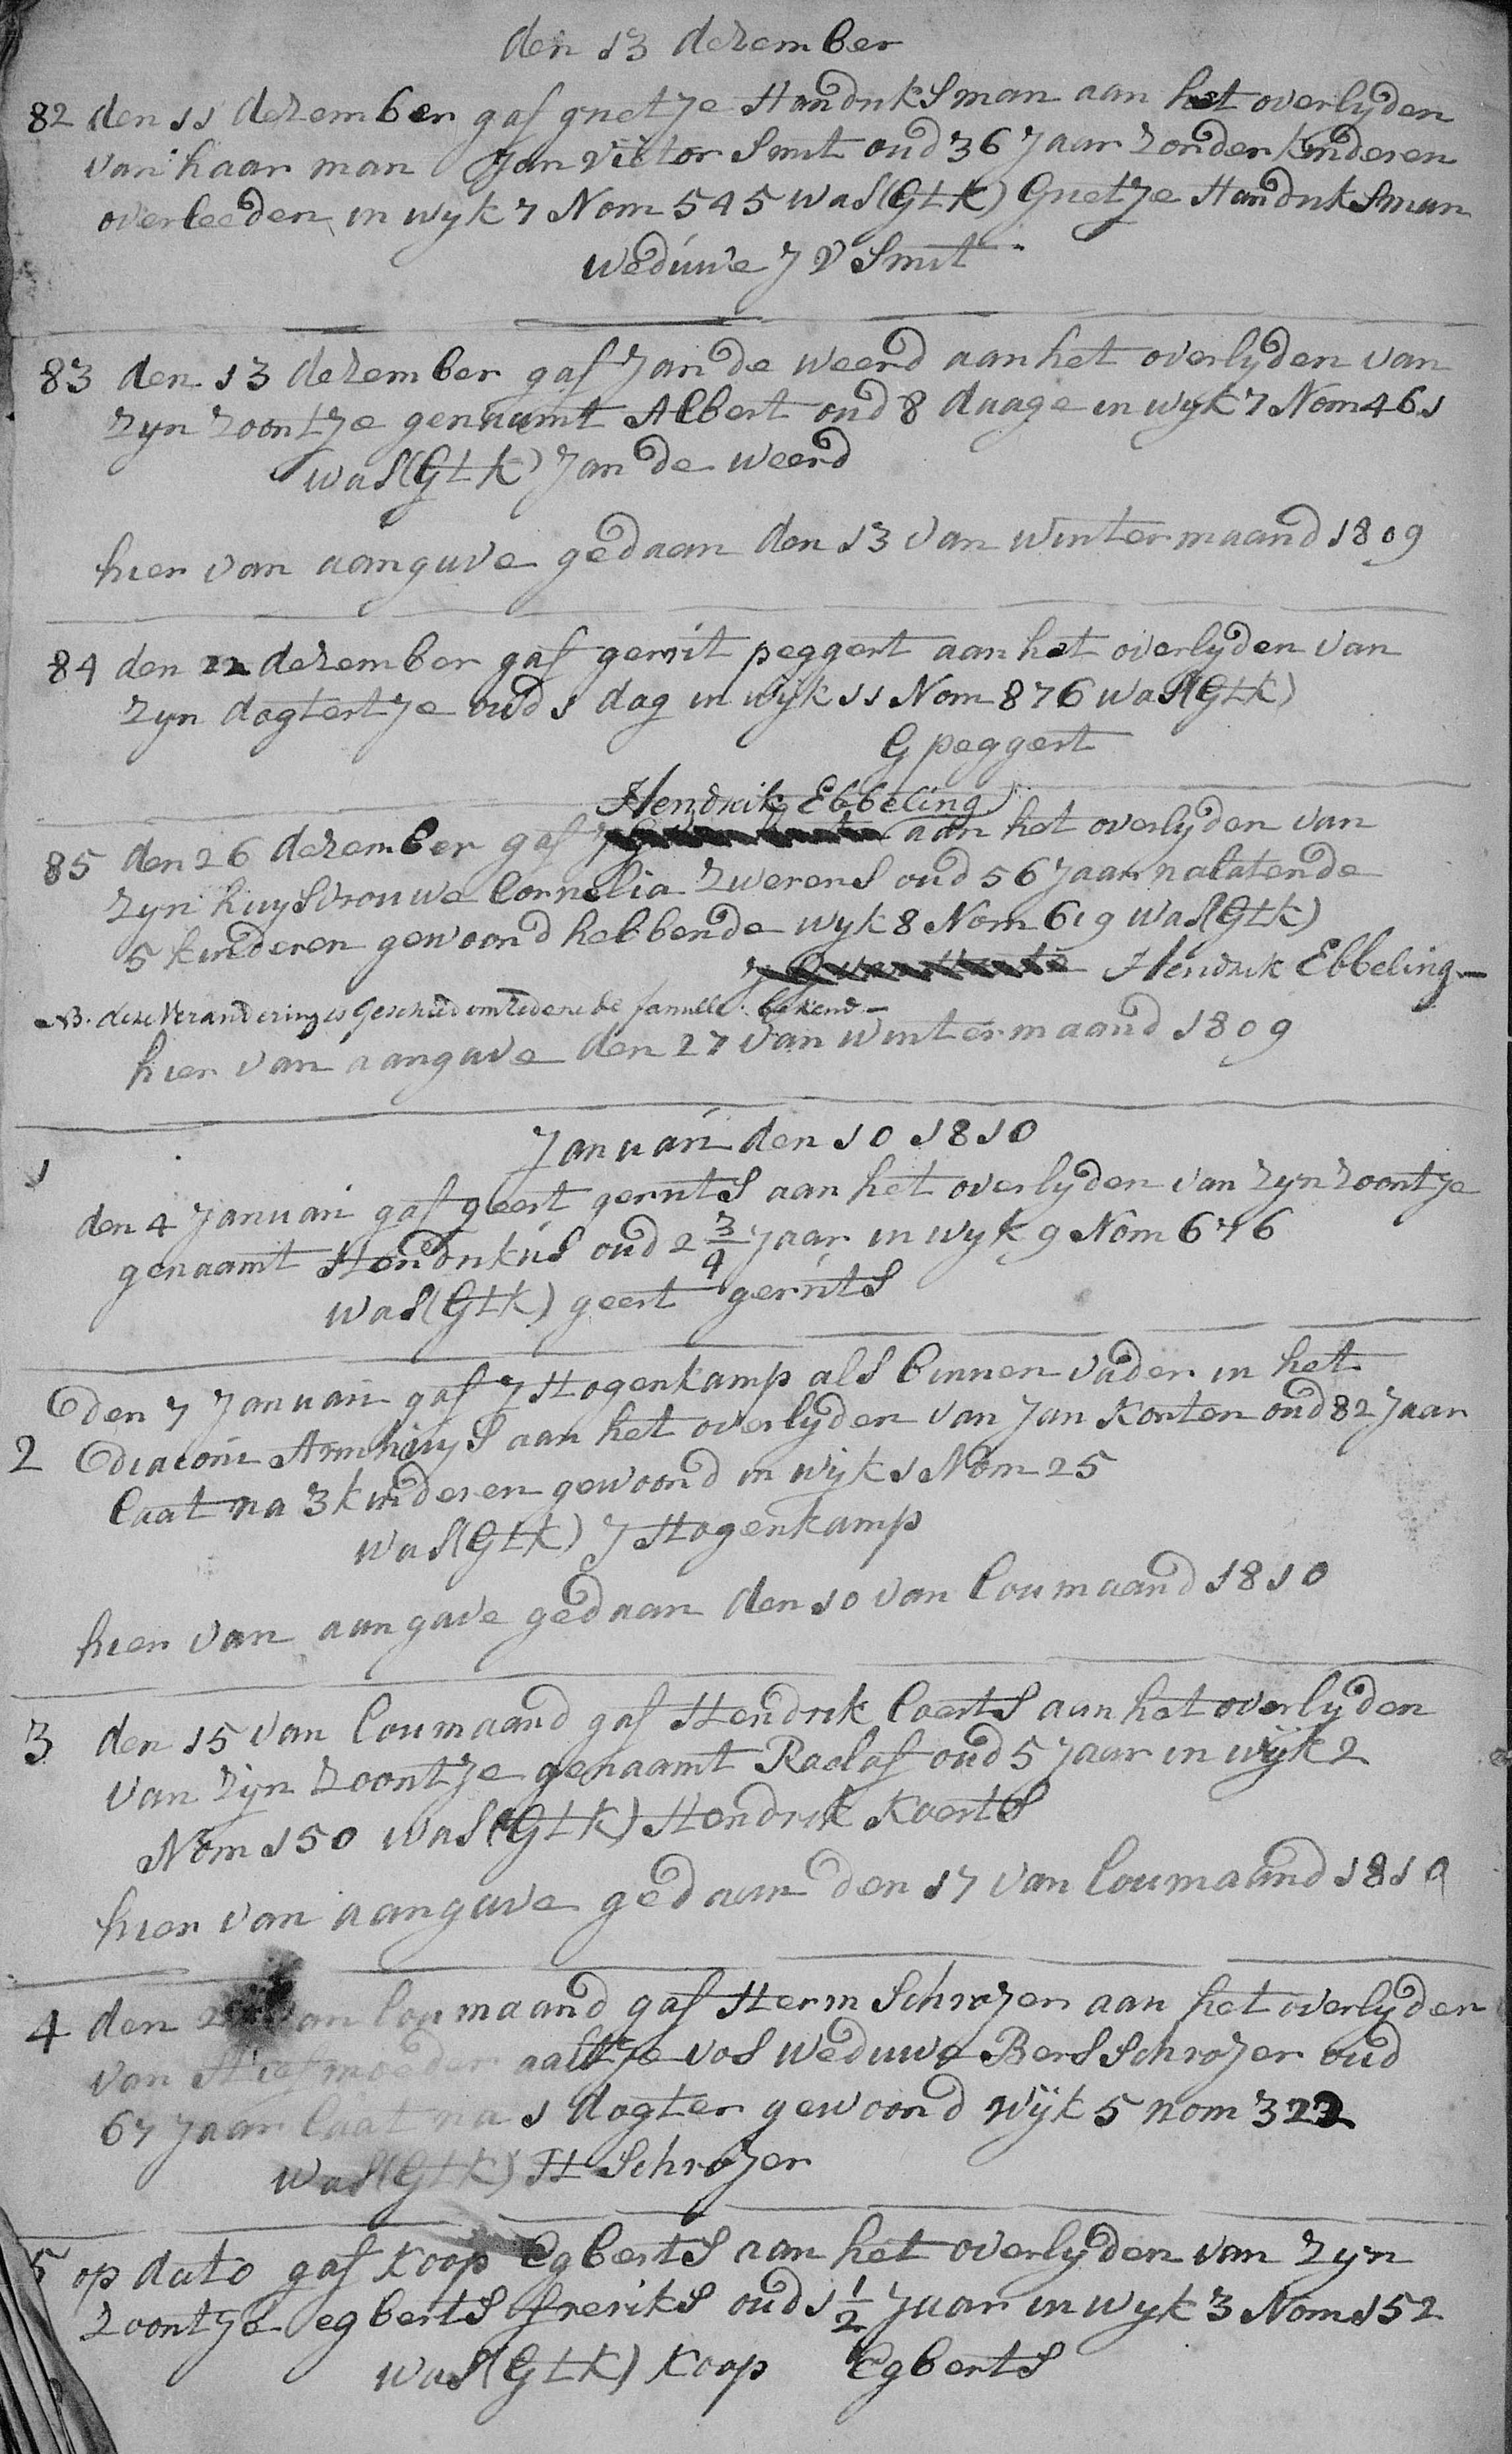 den 13 dezember
82 den 11 dezember gaf grietje Handriksman aan het overlijden
van haar man Jan Victor Smit oud 36 Jaar zonder kinderen
overleeden in wijk 7 Nom 545 was (GtK) Grietje Handriksman
weduwe J V Smit
83 den 13 dezember gaf Jan de weerd aan het overlijden van
zijn zoontje genaamt Albert oud 8 daage in wijk 7 Nom 461
was (GtK) Jan de weerd
hier van aangave gedaan den 13 van wintermaand 1809
84 den 22 dezember gaf gerrit peggert aan het overlijden van
zijn dogtertje oud 1 dag in wijk 11 Nom 876 was (GtK)
G peggert
Hendrik Ebbeling
85 den 26 dezember gaf aan het overlijden van
zijn huijsvrouwe Cornelia Zwerens oud 56 Jaar nalatende
5 kinderen gewoond hebbende wijk 8 Nom 619 was (GtK)
Hendrik Ebbeling
NB. deze Verandering is Geschied om redene de famille bekend
hier van aangave den 27 van wintermaand 1809
Januari den 10 1810
1
den 4 Januari gaf geert gerrits aan het overlijden van zijn zoontje
genaamt Hendrikus oud 2 3/4 jaar in wijk 9 Nom 676
was (GtK) geert gerrits
den 7 Januari gaf J Hogenkamp als binnen vader in het
2 diaconi Armhuijs aan het overlijden van Jan Konter oud 82 Jaar
laat na 3 kinderen gewoond in wijk 1 Nom 25
was (GtK) J Hogenkamp
hier van aangave gedaan den 10 van loumaand 1810
3 den 15 van loumaand gaf Hendrik Coerts aan het overlijden
van zijn zoontje genaamt Raelof oud 5 Jaar in wijk 2
Nom 150 was (GtK) Hendrik Koerts
hier van aangave gedaan den 17 van loumaand 1810
4 den van loumaand gaf Herm Schrojer aan het overlijden
van Stiefmoeder aaltje vos weduwe Bers Schrojer oud
67 Jaar laat na 1 dogter gewoond wijk 5 nom 322
was (GtK) H Schrojer
5 op dato gaf Koop Egberts aan het overlijden van zijn
zoontje egberts freriks oud 1 1/2 Jaar in wijk 3 Nom 152
was (GtK) Koop Egberts